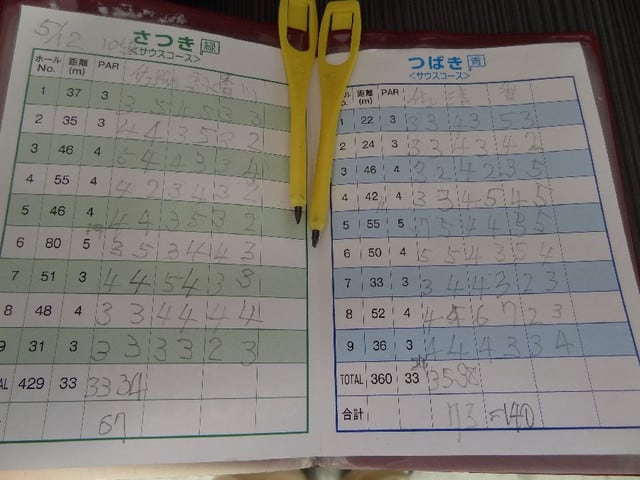 5/12
さつき 緑
<サウスコース>
ホール No. 距離 (m) PAR
1 37 3 3 5 4 5 3 3
2 35 3 4 4 3 5 3 2
3 46 4 5 4 4 3 3 4
4 55 4 4 2 3 4 3 2
5 46 4 4 4 3 5 3 2
6 80 5 3 5 3 4 4 3
7 51 3 4 4 5 4 3 3
8 48 4 3 3 4 4 4 4
9 31 3 3 3 3 3 2 3
AL 429 33 33 34
67
つばき 青
<サウスコース>
ール o. 距離 (m) PAR
1 22 3 3 3 4 3 5 3
2 24 3 3 3 4 3 4 2
3 46 4 3 2 4 2 3 5
4 42 4 3 3 4 5 4 5
5 55 5 5 4 4 5
6 50 4 5 5 4 3 5 4
7 33 3 3 4 4 3 2 3
8 52 4 4 6 7 2 3
9 36 3 4 4 4 3 3 4
TOTAL 360 33 35 38
合計 73 =140